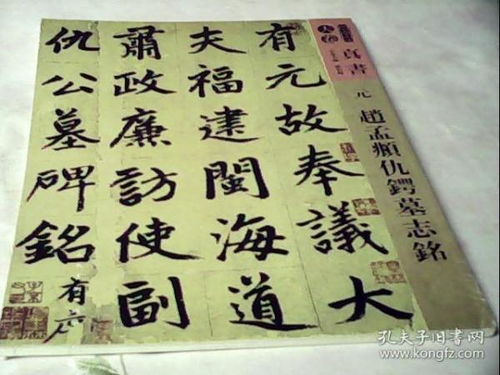 真書
元 趙孟頫仇鍔墓志銘
有元故奉議大
夫福建閩海道
肅政廉訪使副
仇公墓碑銘有序
孔夫子旧书网
www.kongfz.com